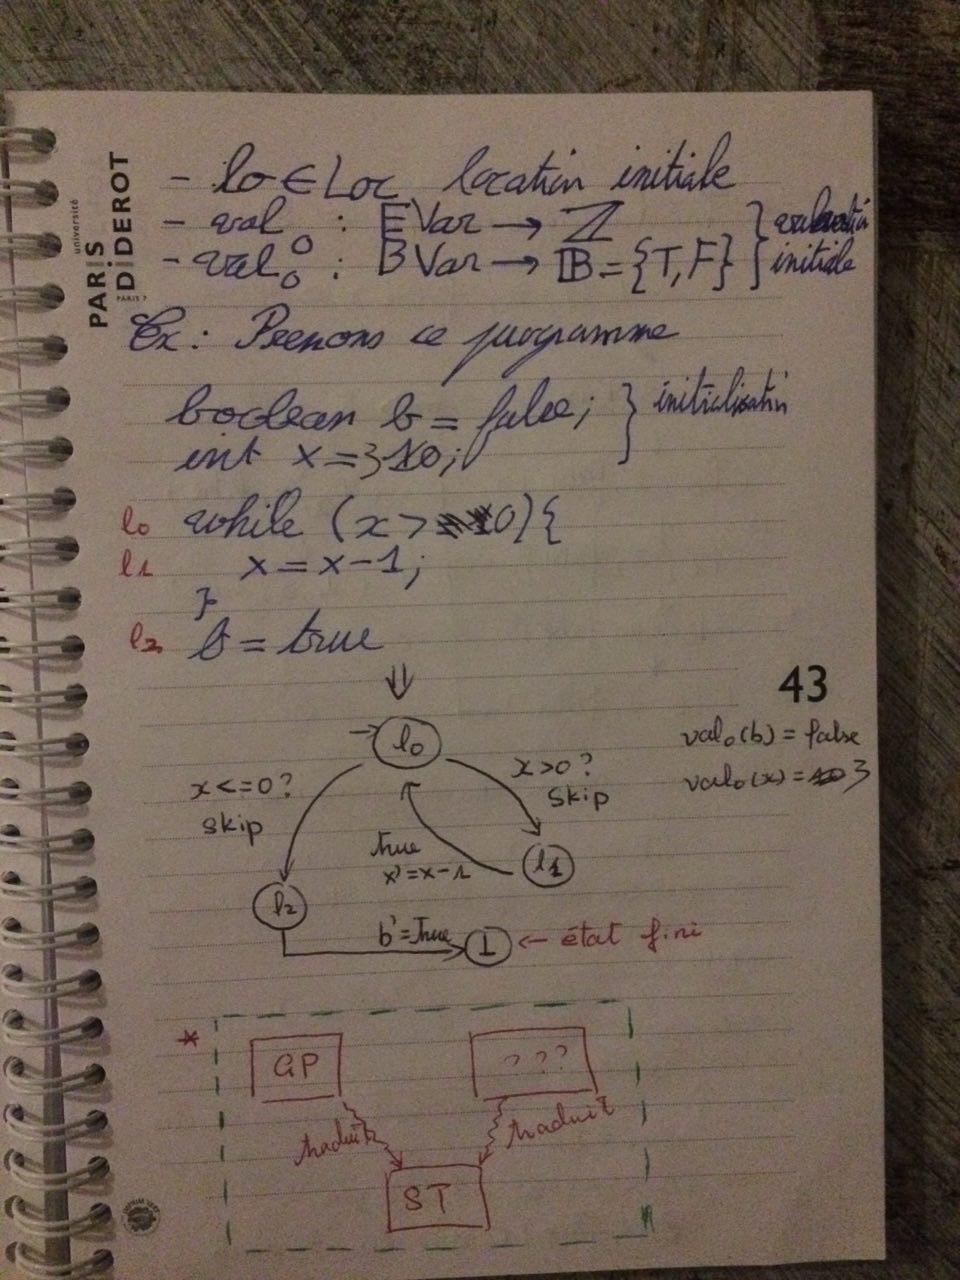 université
PARIS
DIDEROT
PARIS 7
- l₀ ∈ Loc location initiale
- val₀ : EVar → ℤ } valuation
- val₀ : BVar → 𝔹 = {T, F} } initiale
Ex : Prenons ce programme
boolean b = false; } initialisation
int x = 3;
l₀ while (x > 0){
l₁ x = x - 1;
}
l₂ b = true
⇓
43
→ l₀
val₀(b) = false
val₀(x) = 3
x <= 0 ?
skip
x > 0 ?
skip
true
x' = x - 1
l₁
l₂
b' = True
⊥ ← état fini
*
GP
? ? ?
traduit
traduit
ST